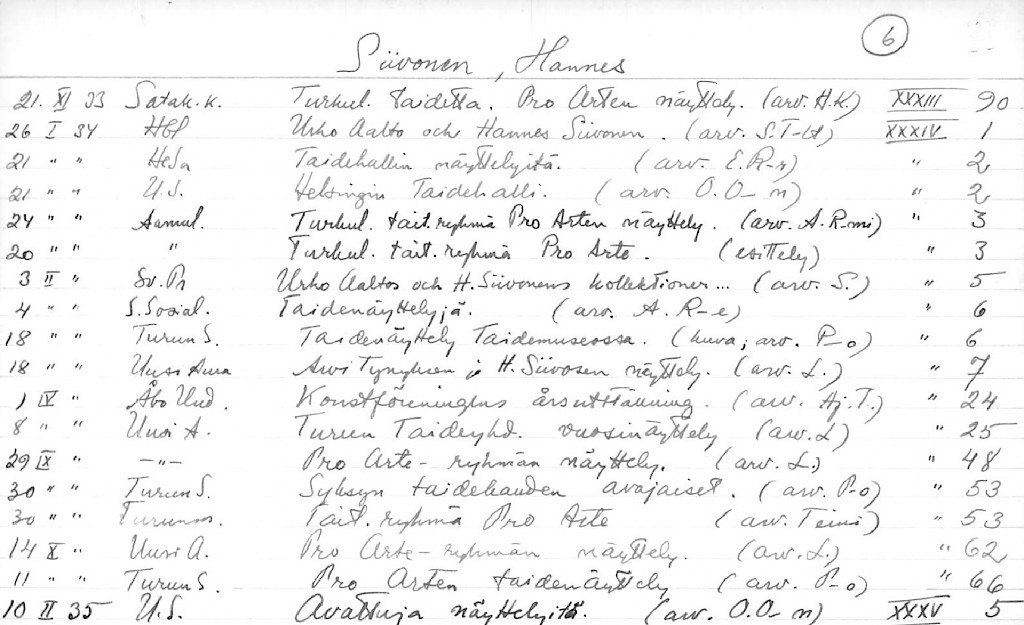 6
Siivonen, Hannes
21. XI 33 Satak.k. Turkul. taidetta. Pro Arten näyttely. (arv. H.K.) XXXIII 90
26 I 34 Hbl Urho Aalto och Hannes Siivonen. (arv. S.T-ll) XXXIV 1
21 " " HeSa Taidehallin näyttelyitä. (arv. E.R-r) " 2
21 " " U.S. Helsingin Taidehalli. (arv. O.O-n) " 2
24 " " Aamul. Turkul. tait.ryhmä Pro Arten näyttely. (arv. A.R-mi) " 3
20 " " " Turkul. tait.ryhmä Pro Arte. (esittely) " 3
3 II " Sv.Pr Urho Aaltos och H. Siivonens kollektioner... (arv. S.) " 5
4 " " S.Sosial. Taidenäyttelyjä. (arv. A.R-e) " 6
18 " " Turun S. Taidenäyttely Taidemuseossa. (kuva; arv. P-o) " 6
18 " " Uusi Aura Arvi Tynyksen ja H. Siivosen näyttely. (arv. L.) " 7
1 IV " Åbo Und. Konstföreningens årsutställning. (arv. Hj.T.) " 24
8 " " Uusi A. Turun Taideyhd. vuosinäyttely (arv. L) " 25
29 IX " -"- Pro Arte-ryhmän näyttely. (arv. L.) " 48
30 " " Turun S. Syksyn taidekauden avajaiset. (arv. P-o) " 53
30 " " Turunm. Tait.ryhmä Pro Arte (arv. Teini) " 53
14 X " Uusi A. Pro Arte-ryhmän näyttely. (arv. L.) " 62
11 " " Turun S. Pro Arten taidenäyttely (arv. P-o) " 66
10 II 35 U.S. Avattuja näyttelyitä. (arv. O.O-n) XXXV 5